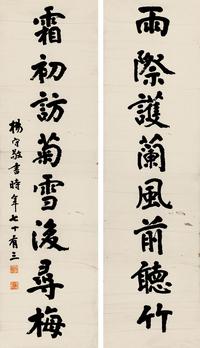 雨際護蘭風前聽竹
霜初訪菊雪後尋梅
楊守敬書時年七十有三